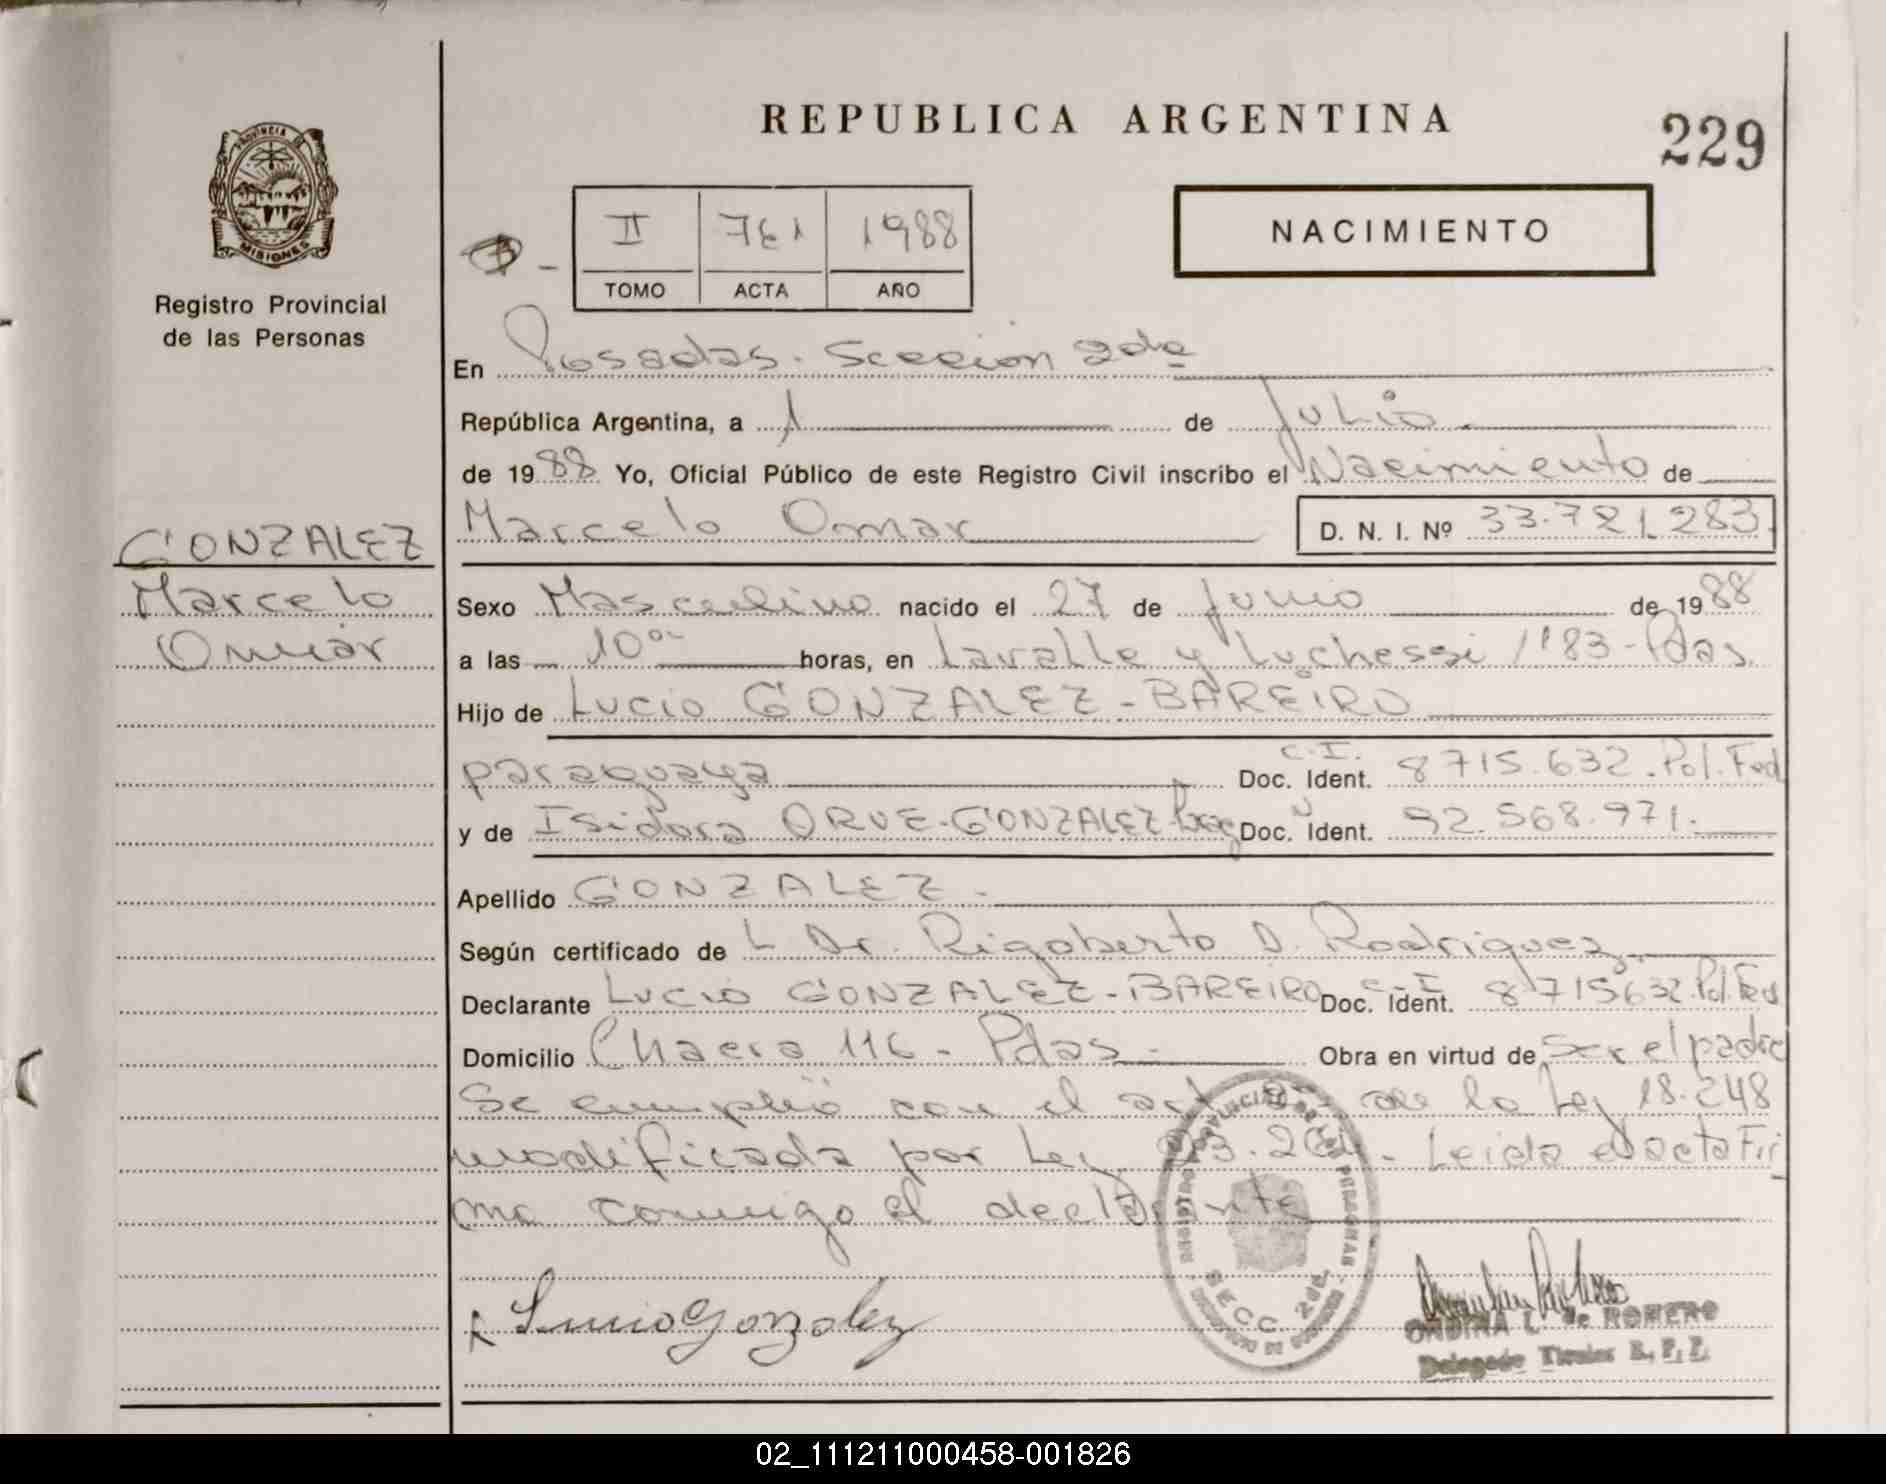 REPUBLICA ARGENTINA
229
PROVINCIA
MISIONES
Registro Provincial
de las Personas
II 761 1988
TOMO ACTA AÑO
NACIMIENTO
En Posadas. Seccion 2da
República Argentina, a 1 de Julio
de 1988 Yo, Oficial Público de este Registro Civil inscribo el Nacimiento de
Marcelo Omar D. N. I. Nº 33.721.283.
GONZALEZ
Marcelo
Omar
Sexo Masculino nacido el 27 de Junio de 1988
a las 10 horas, en Lavalle y Luchessi 183-Pdas.
Hijo de Lucio GONZALEZ-BAREIRO
paraguaya C.I. Doc. Ident. 8715.632.Pol.Fed
y de Isidora ORUE-GONZALEZ Doc. Ident. 92.568.971.
Apellido GONZALEZ.
Según certificado de L Dr. Rigoberto D. Rodriguez
Declarante Lucio GONZALEZ-BAREIRO C.I. Doc. Ident. 8715632.Pol.Fed
Domicilio Chacra 116- Pdas. Obra en virtud de Ser el padre
Se cumplió con el art de la Ley 18.248
modificada por Ley 23.264. Leida el acta Fir
ma conmigo el declarante
Lucio Gonzalez
SECC 2da
ONDINA L. de ROMERO
Delegado Titular R. P. P.
02_111211000458-001826